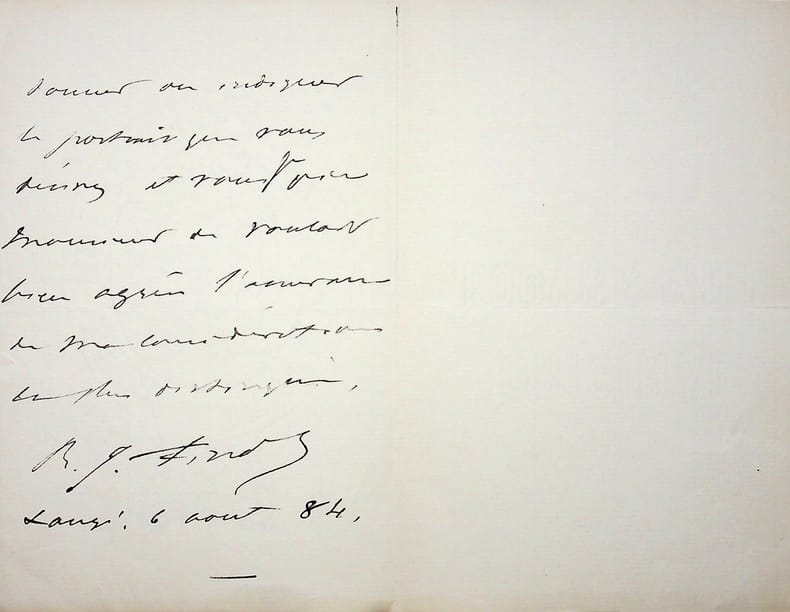 donner ou indiquer
le portrait que vous
désirez et vous prie
Monsieur de vouloir
bien agréer l'assurance
de ma considération
la plus distinguée,
6 août 84.